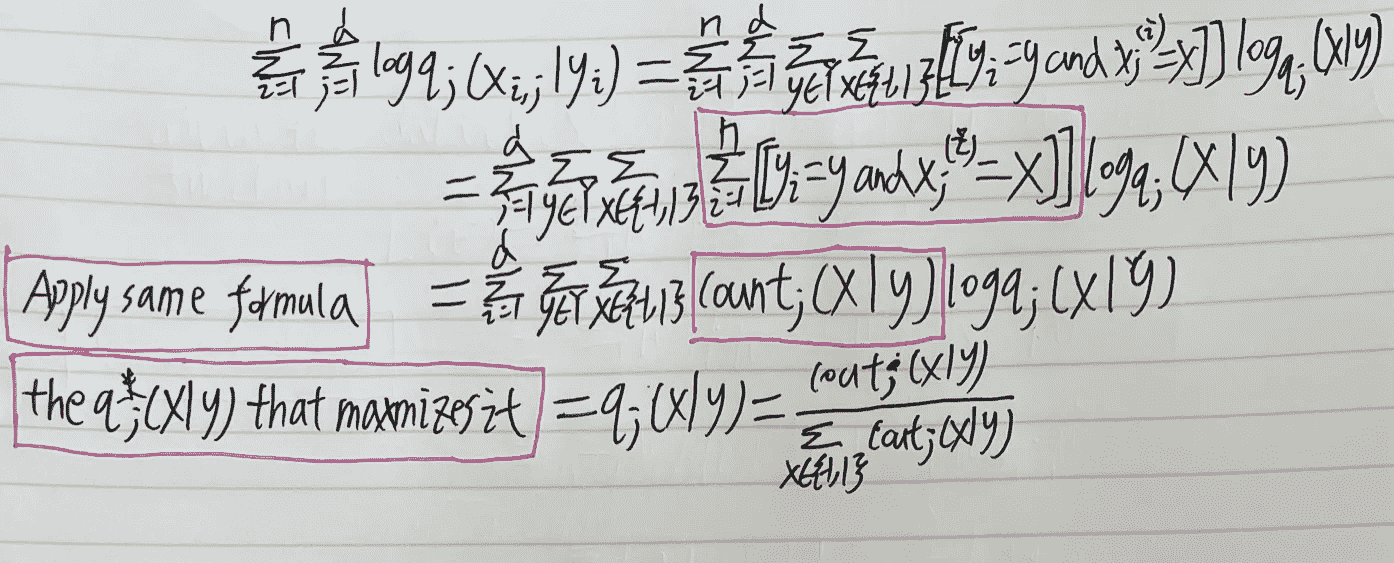 $\sum_{i=1}^{n} \sum_{j=1}^{d} \log q_j (x_{i,j} | y_i) = \sum_{i=1}^{n} \sum_{j=1}^{d} \sum_{y \in Y} \sum_{x \in \{-1,1\}} [[y_i = y \text{ and } x_j^{(i)} = x]] \log q_j (x|y)$
$= \sum_{j=1}^{d} \sum_{y \in Y} \sum_{x \in \{-1,1\}} \sum_{i=1}^{n} [[y_i = y \text{ and } x_j^{(i)} = x]] \log q_j (x|y)$
Apply same formula $= \sum_{i=1}^{d} \sum_{y \in Y} \sum_{x \in \{-1,1\}} \text{count}_j (x|y) \log q_j (x|y)$
the $q_j^* (x|y)$ that maxmizes it $= q_j (x|y) = \frac{\text{cout}_j (x|y)}{\sum_{x \in \{-1,1\}} \text{cout}_j (x|y)}$